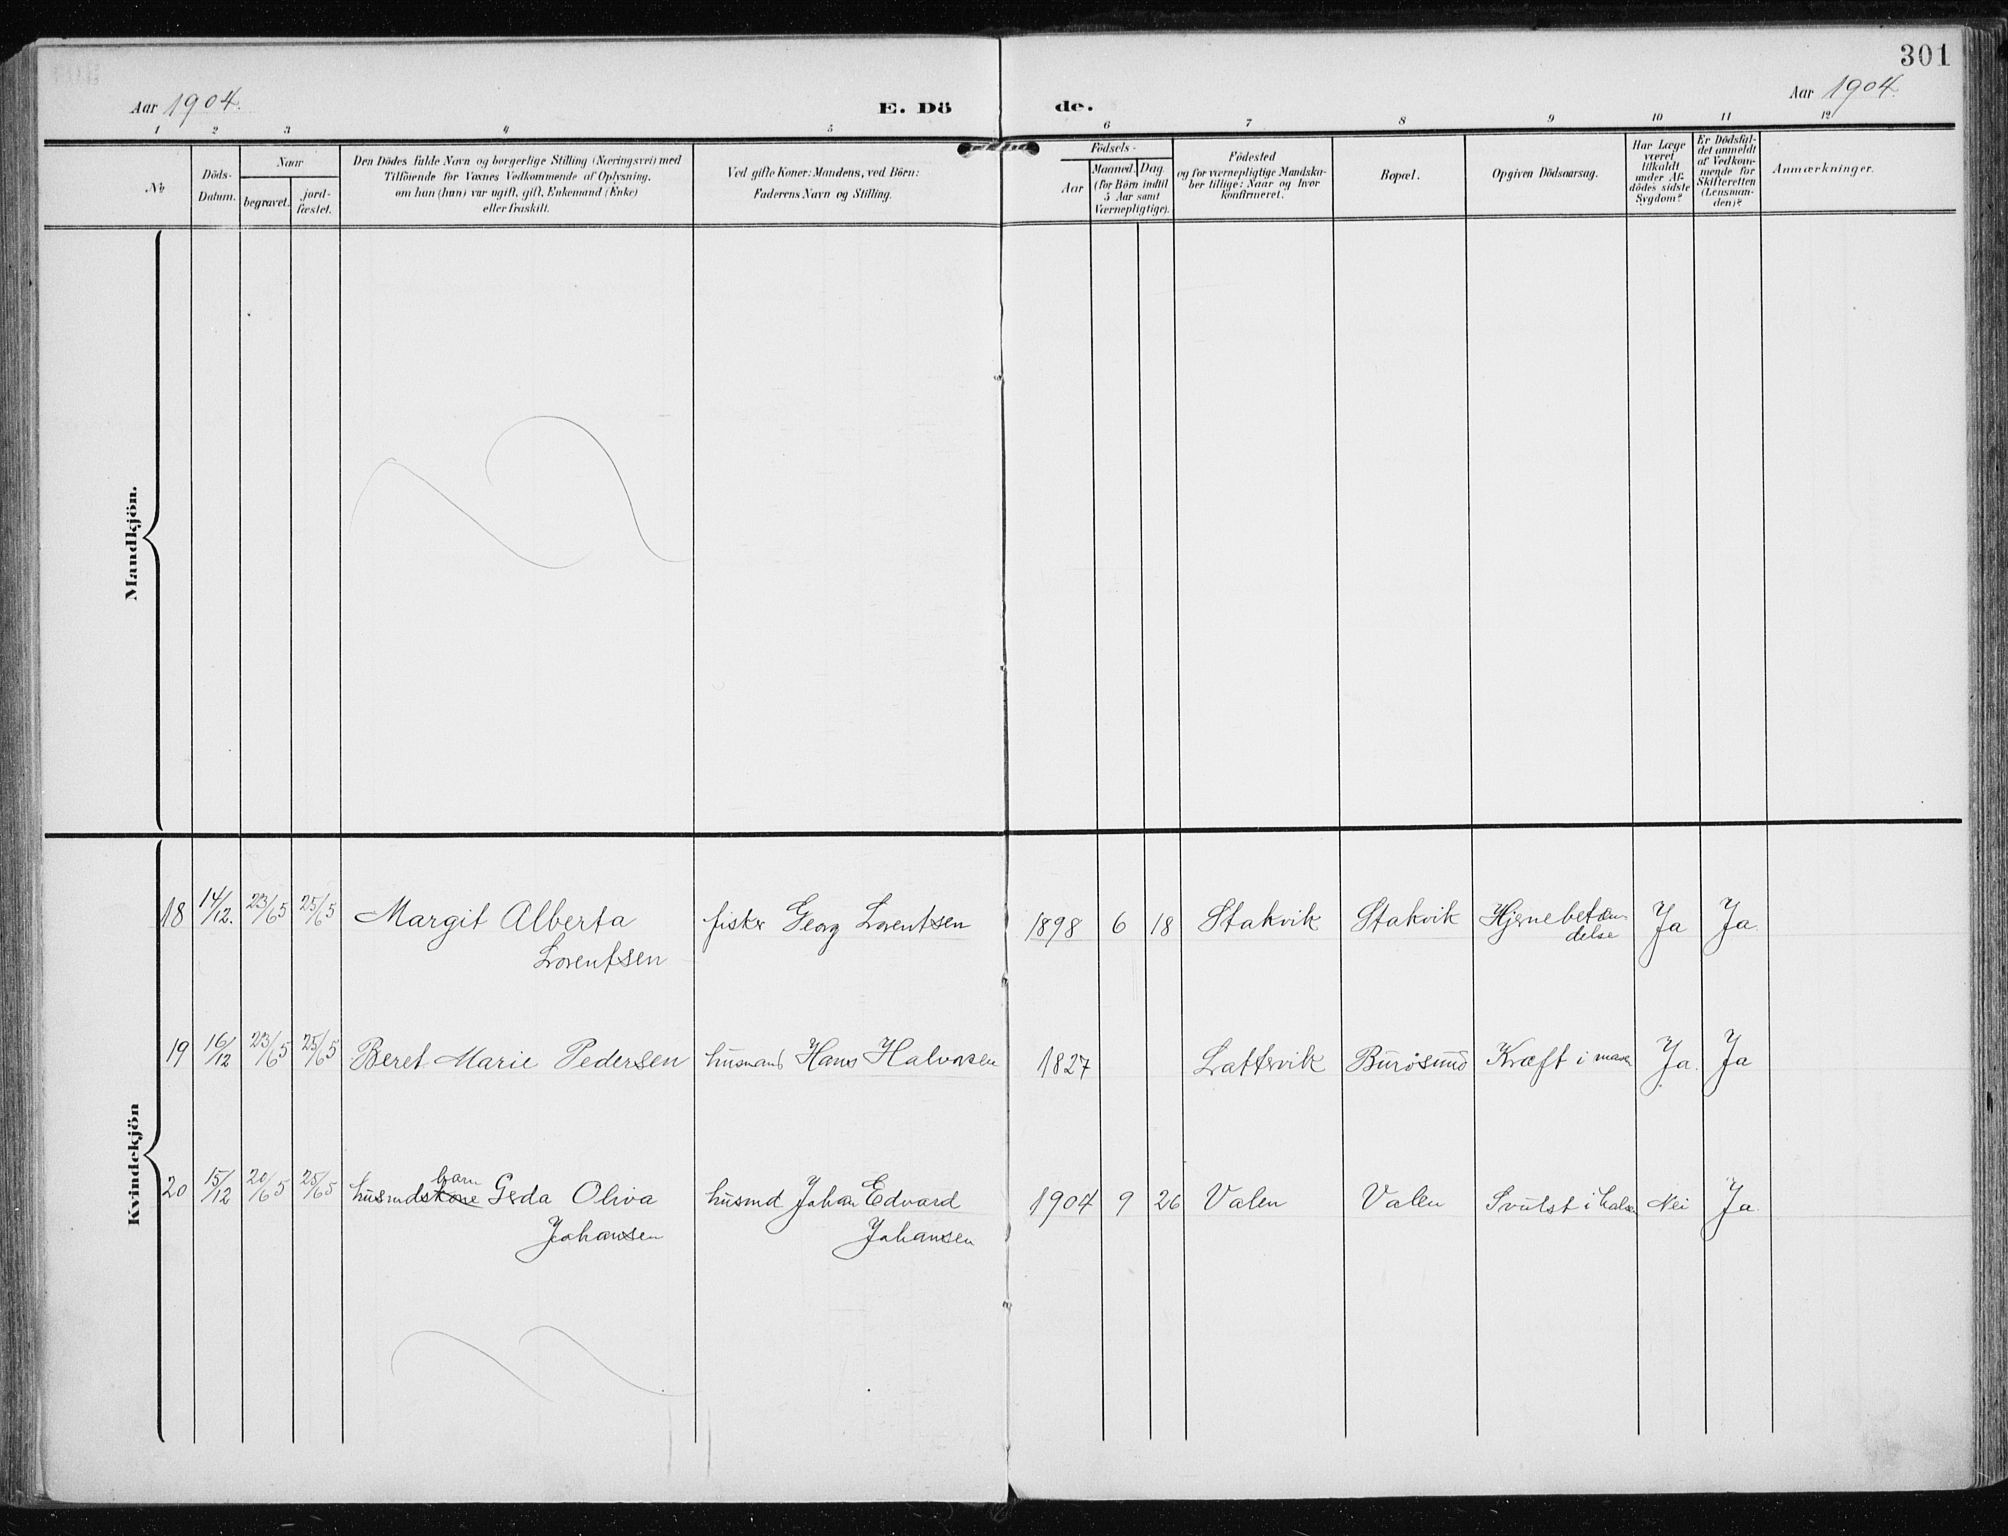 301
Aar 1904.
E. Dö
de.
Aar 1904.
1 2 3 4 5 6 7 8 9 10 11 12
No
Döds-
Datum.
Naar
begravet.
jord-
fæstet.
Den Dödes fulde Navn og borgerlige Stilling (Næringsvei) med
Tilföiende for Voxnes Vedkommende af Oplysning,
om han (hun) var ugift, gift, Enkemand (Enke)
eller fraskilt.
Ved gifte Koner: Mandens, ved Börn:
Faderens Navn og Stilling.
Födsels-
Aar
Maaned. Dag
(for Börn indtil
5 Aar samt
Værnepligtige).
Födested
og for værnepligtige Mandska-
ber tillige: Naar og hvor
konfirmeret.
Bopæl.
Opgiven Dödsaarsag.
Har Læge
været
tilkaldt
under Af-
dödes sidste
Sygdom?
Er Dödsfal-
det anmeldt
af Vedkom-
mende for
Skifteretten
(Lensman-
den)?
Anmærkninger.
Mandkjön.
Kvindekjön
18 14/12. 23/65 25/65 Margit Alberta fisker Georg Lorentsen 1898 6 18 Stakvik Stakvik Hjernebetæn- Ja Ja.
Lorentsen delse
19 16/12 23/65 25/65 Beret Marie Pedersen husmand Hans Halvorsen 1827 Lattervik Burøsund Kræft i maven Ja. Ja
barn
20 15/12 20/65 25/65 husmdskone Geda Oliva husmd Johan Edvard 1904 9 26 Valen Valen Svulst i halsen Nei Ja.
Johansen Johansen